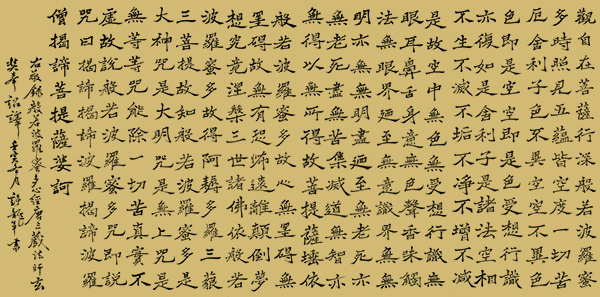 觀自在菩薩行深般若波羅蜜
多時照見五蘊皆空度一切苦
厄舍利子色不異空空不異色
色即是空空即是色受想行識
亦復如是舍利子是諸法空相
不生不滅不垢不淨不增不減
是故空中無色無受想行識無
眼耳鼻舌身意無色聲香味觸
法無眼界廼至無意識界無無
明亦無無明盡廼至無老死亦
無老死盡無苦集滅道無智亦
無得以無所得故菩提薩埵依
般若波羅蜜多故心無罣礙無
罣礙故無有恐怖遠離顛倒夢
想究竟涅槃三世諸佛依般若
波羅蜜多故得阿耨多羅三藐
三菩提故知般若波羅蜜多是
大神咒是大明咒是無上咒是
無等等咒能除一切苦真實不
虛故說般若波羅蜜多咒即說
咒曰揭諦揭諦波羅揭諦波羅
僧揭諦菩提薩婆訶
右敬錄般若波羅蜜多心經唐三藏法師玄
奘奉詔譯